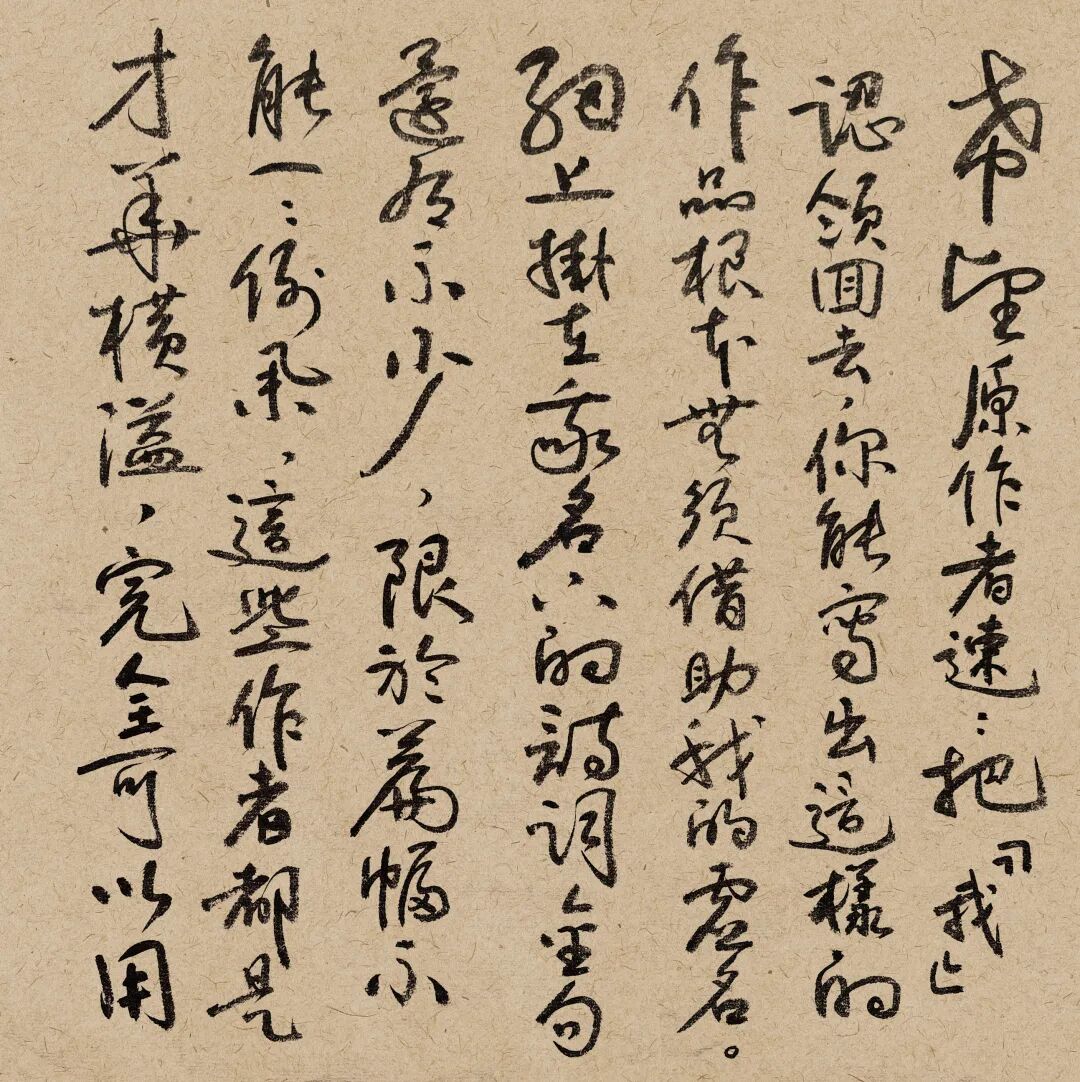 希望原作者速:把『我』
認領回去,你能寫出這樣的
作品根本無須借助我的虛名。
網上掛在我名下的詩詞金句
還有不少,限於篇幅不
能一:例舉,這些作者都是
才華橫溢,完全可以用